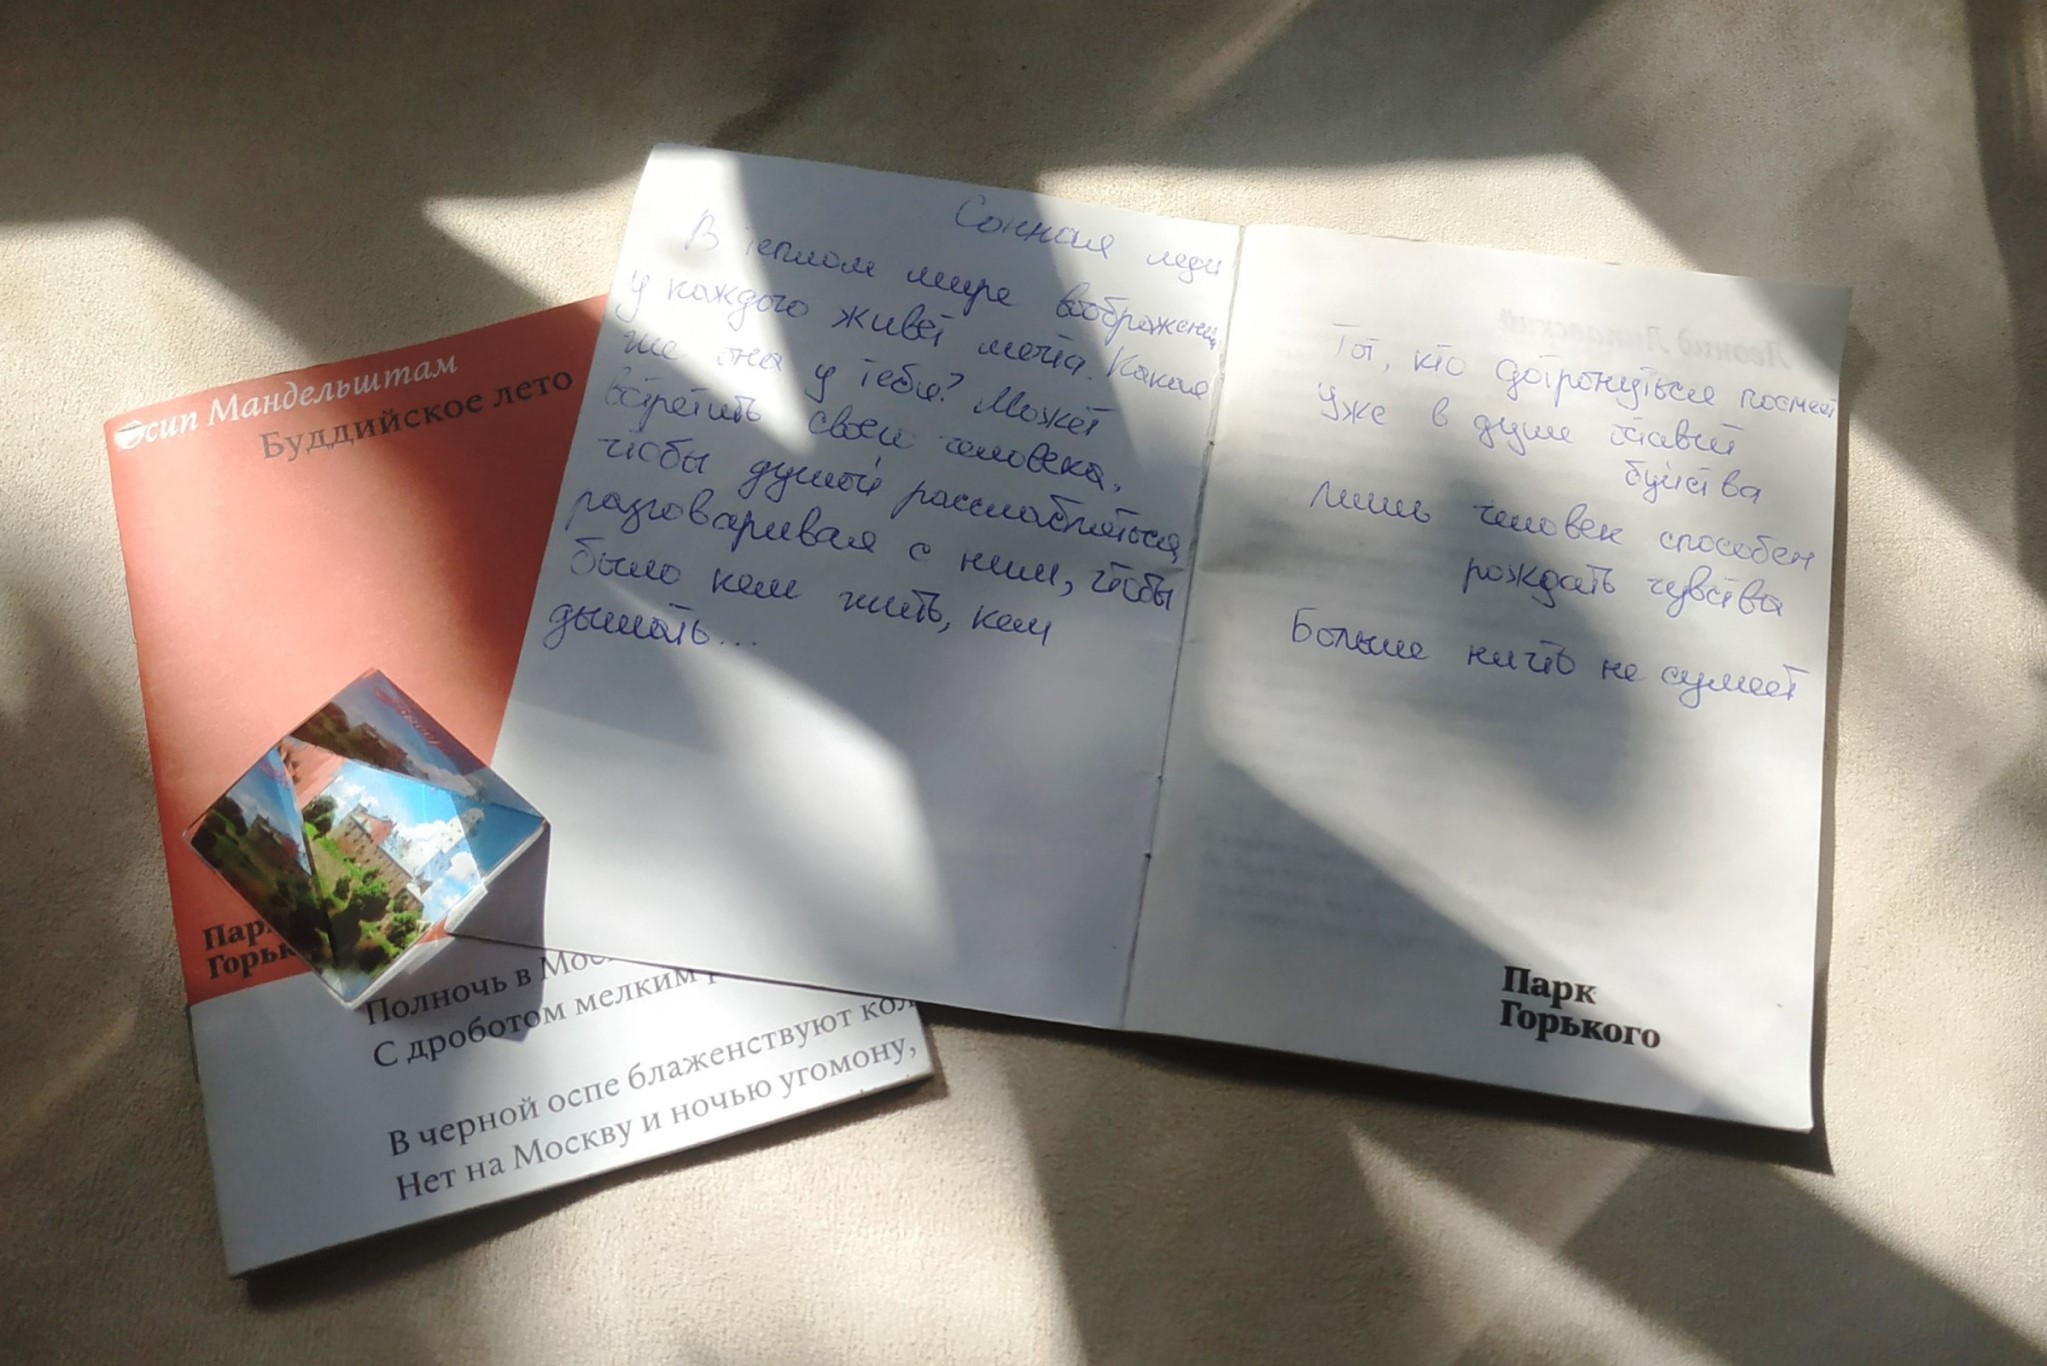 Осип Мандельштам
Буддийское лето
Парк
Горьк
Полночь в Мос
С дроботом мелким р
В черной оспе блаженствуют кол
Нет на Москву и ночью угомону,
Сонная леди
В теплом мире воображения
у каждого живет мечта. Какая
же она у тебя? Может
встретить своего человека,
чтобы душой расслабляться,
разговаривая с ним, чтобы
было кем жить, кем
дышать...
Тот, кто дотронуться посмеет
Уже в душе
буйства
Лишь человек способен
рождать чувства
Больше ничто не сумеет
Парк
Горького